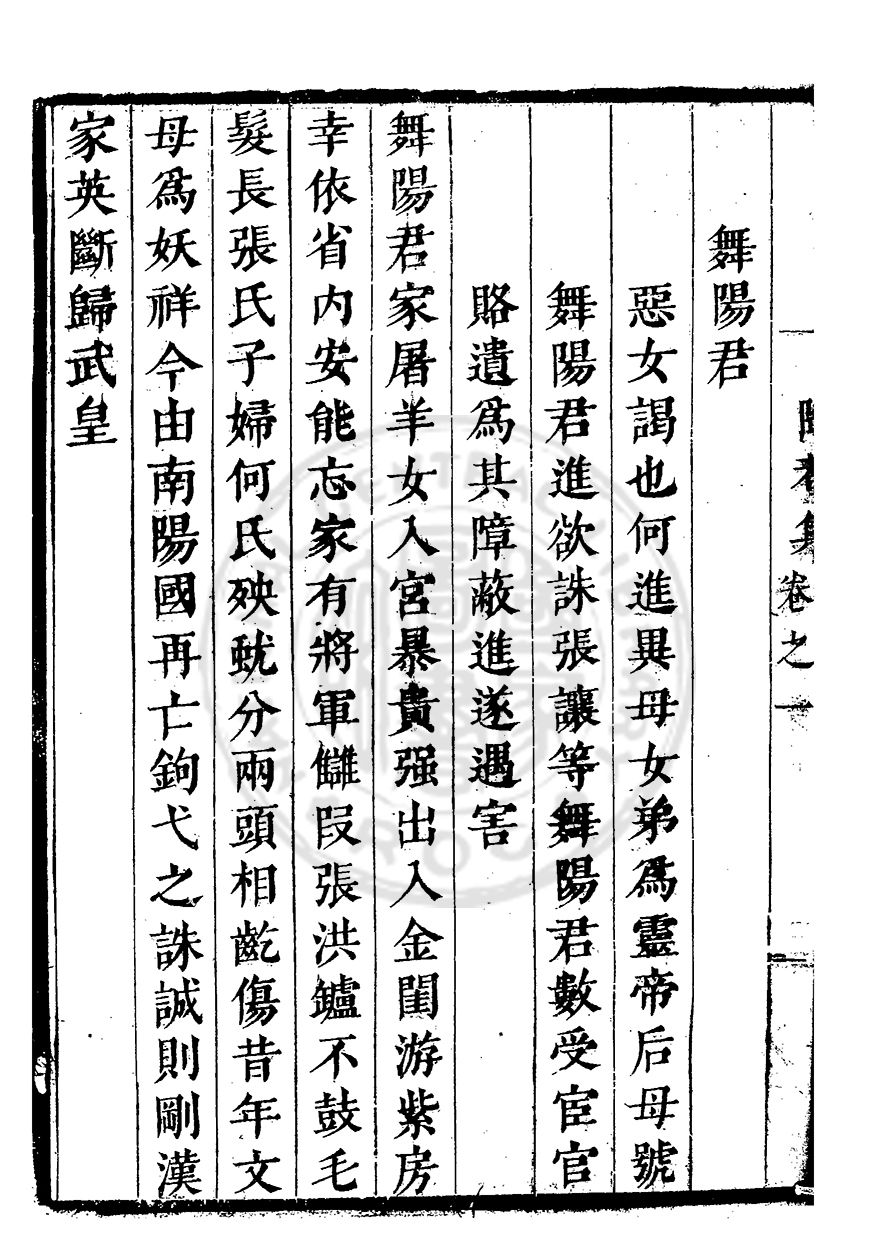 卷之一
舞陽君
惡女謁也何進異母女弟爲靈帝后母號
舞陽君進欲誅張讓等舞陽君數受宦官
賂遺爲其障蔽進遂遇害
舞陽君家屠羊女入宮暴貴强出入金閨游紫房
幸依省内安能忘家有將軍讎叚張洪鑪不鼓毛
髮長張氏子婦何氏殃虵分兩頭相齕傷昔年文
母爲妖祥今由南陽國再亡鉤弋之誅誠則剛漢
家英斷歸武皇